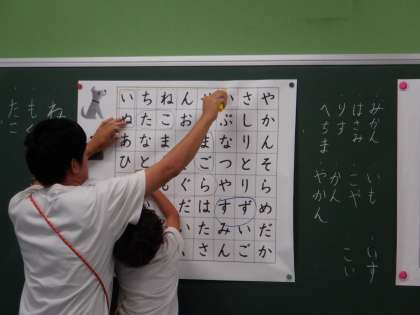 みかん
はさみ
りす
へちま
いも
こや
かん
やかん
いす
こい
いちねん かさや
ぬたこお ぶしか
あなま まなりん
ひと ごつとそ
ぐらやりら
だ はすずめ
い たみいだ
さんごか
ね
たこ